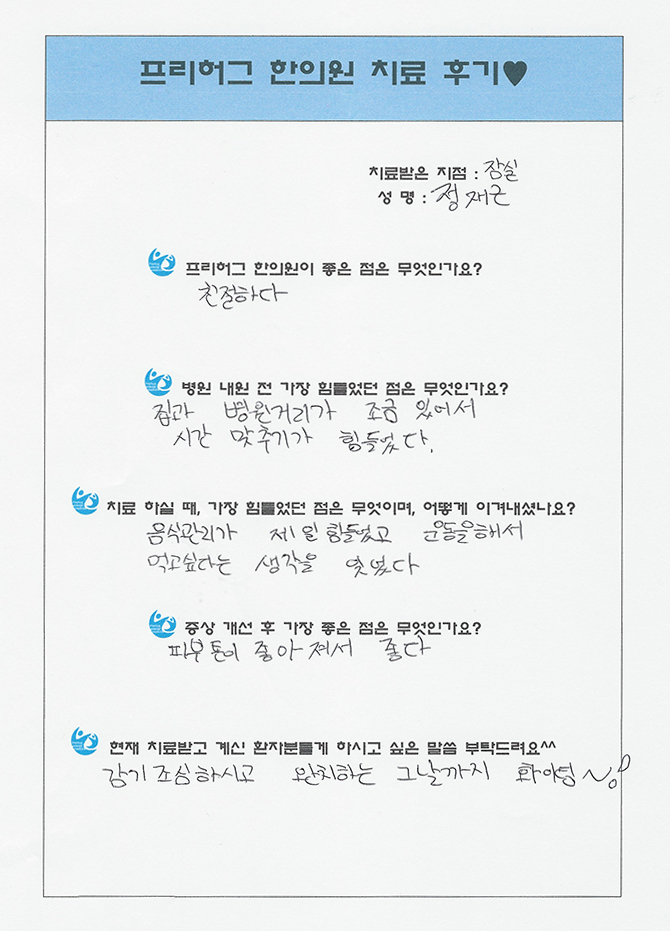 프리허그 한의원 치료 후기♥
치료받은 지점 : 잠실
성 명 : 정재근
프리허그 한의원이 좋은 점은 무엇인가요?
친절하다
병원 내원 전 가장 힘들었던 점은 무엇인가요?
집과 병원거리가 조금 있어서
시간 맞추기가 힘들었다.
치료 하실 때, 가장 힘들었던 점은 무엇이며, 어떻게 이겨내셨나요?
음식관리가 제1일 힘들었고 운동을해서
먹고싶다는 생각을 잊었다
증상 개선 후 가장 좋은 점은 무엇인가요?
피부톤이 좋아져서 좋다
현재 치료받고 계신 환자분들게 하시고 싶은 말씀 부탁드려요^^
감기조심하시고 완치하는 그날까지 화이팅~!